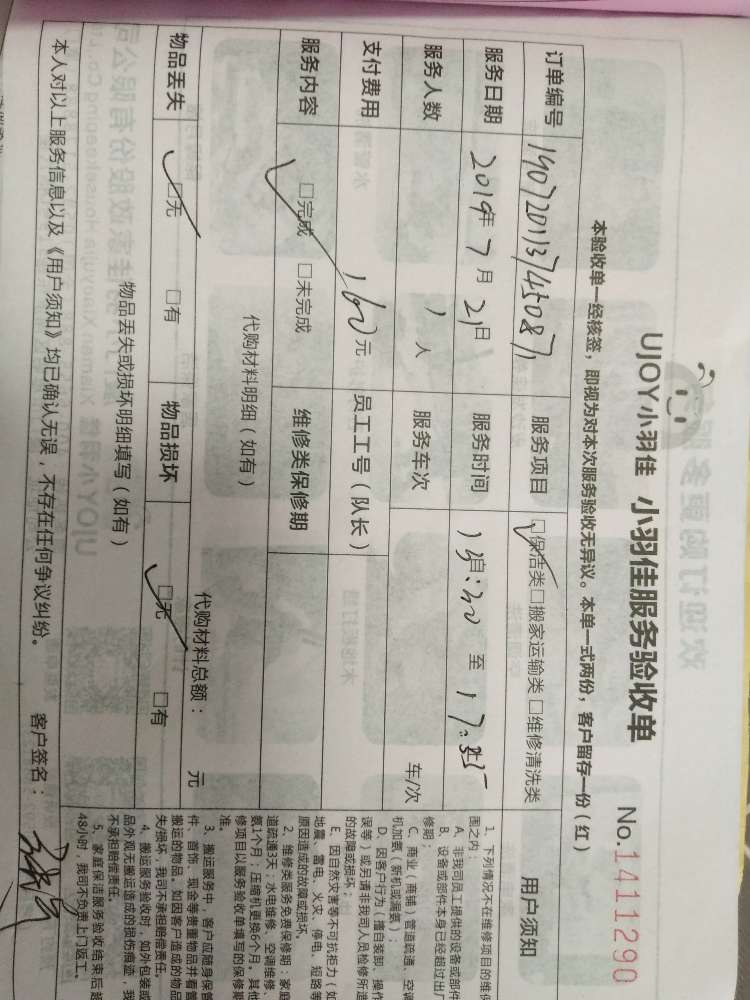 UJOY小羽佳 小羽佳服务验收单 No.1411290
本验收单一经核签，即视为对本次服务验收无异议。本单一式两份，客户留存一份（红）
订单编号 服务项目 □保洁类□搬家运输类 □维修清洗类
服务日期 2019年 7月 21日 服务时间 至
服务人数 1 人 服务车次 车/次
支付费用 160元 员工工号（队长）
服务内容 □完成 □未完成 维修类保修期
代购材料明细（如有） 代购材料总额： 元
物品丢失 □无 □有 物品损坏 □无 □有
物品丢失或损坏明细填写（如有）
本人对以上服务信息以及《用户须知》均已确认无误，不存在任何争议纠纷。 客户签名：
用户须知
1、下列情况不在维修项目的维保
围之内：
A、非我司员工提供的设备或部件
B、设备或部件本身已经超过出厂
修期；
C、商业（商铺）管道疏通、空调
机加氨（新机或漏氨）；
D、因客户行为（擅自装卸、操作
误等）或另请非我司人员检修所造
的故障或损坏；
E、因自然灾害等不可抗拒力（如
地震、雷电、火灾、停电、短路等
原因造成的故障或损坏。
2、维修类服务免费保修期：家庭
道疏通3天，水电维修、空调维修、
氨1个月；压缩机更换6个月。其他
修项目以服务验收单填写的保修期
准。
3、搬运服务中，客户应随身保管
件、首饰、现金等贵重物品并看管
搬运的物品。如因客户造成的物品
失/损坏，我司不承担赔偿责任。
4、搬运服务验收时，如外包装或
品外观无搬运造成的损伤痕迹，我
不承担赔偿责任。
5、家庭保洁服务验收结束后超
48小时，我司不负责上门返工。